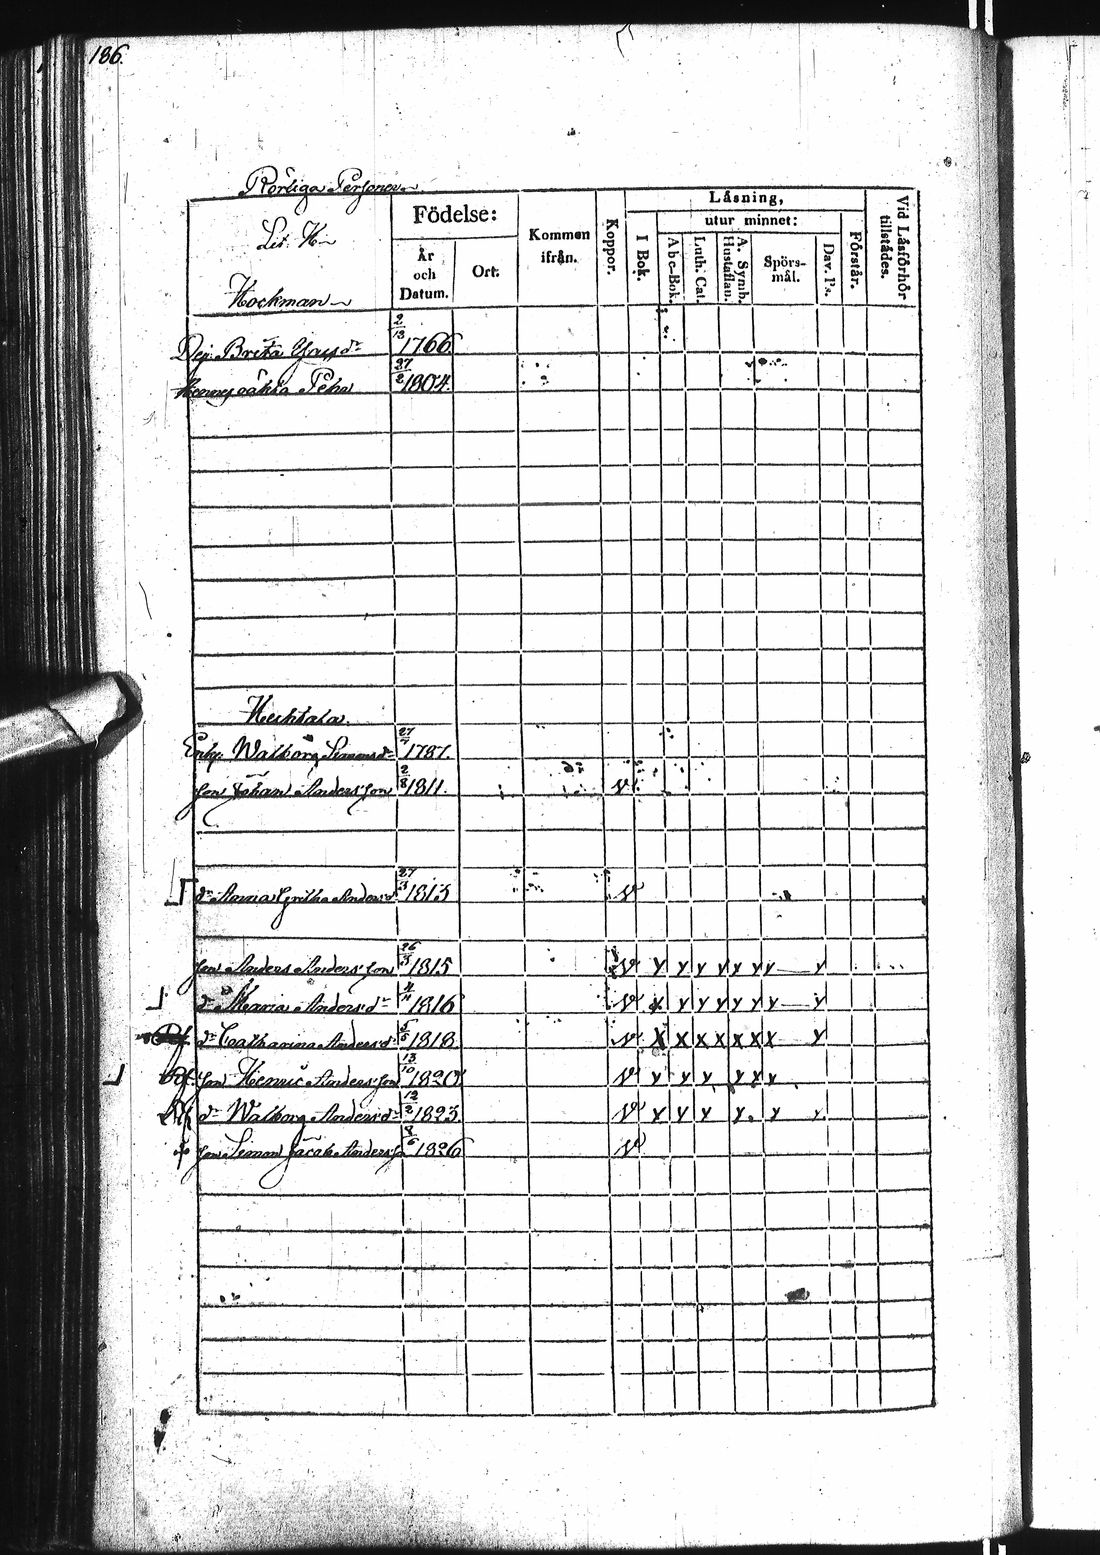 186.
Rörliga Personer
Lit. H.
Födelse:
År och Datum.
Ort.
Kommen ifrån.
Koppor.
Läsning,
I Bok.
utur minnet:
A b c-Bok.
Luth. Cat.
A. Symb. Hustaflan.
Spörsmål.
Dav. Ps.
Förstår.
Vid Läsförhör tillstädes.
Hockman
Pig. Brita 2/13 1766.
27/2 1804.
Enk. Walborg Simonsdr 27/7 1787.
Son Johan Andersson 2/8 1811. v
dr Anna Gretha Andersdr 27/3 1813 v
Son Anders Andersson 26/3 1815 v y y y y y y y — y
dr Maria Andersdr 4/11 1816 v x y y y y y y — y
dr Catharina Andersdr 5/5 1818 v x x x x x x x y
Son Henric Andersson 13/10 1820 v y y y y y y
dr Walborg Andersdr 12/2 1823. v y y y y. y y
Son Simon Jacob Anderss 8/6 1826 v